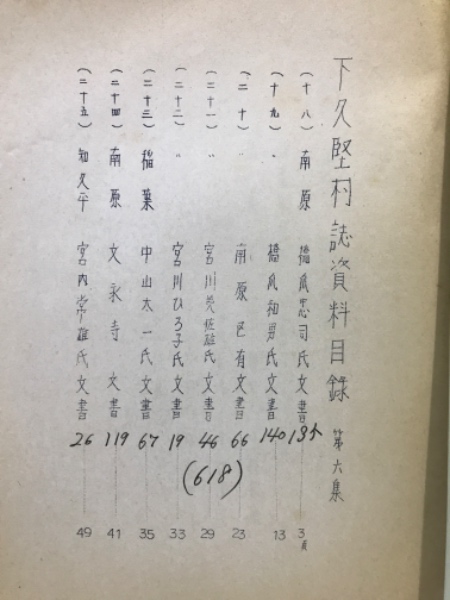 下久堅村誌資料目録 第六集
(十八) 南原 橋爪忠司氏文書 135 3頁
(十九) 〃 橋爪和男氏文書 140 13
(二十) 〃 南原区有文書 66 23
(二十一) 〃 宮川 氏文書 46 29
(二十二) 〃 宮川ひろ子氏文書 19 33
(二十三) 稲葉 中山太一氏文書 67 35
(二十四) 南原 文永寺文書 119 41
(二十五) 知久平 宮内常雄氏文書 26 49
(618)